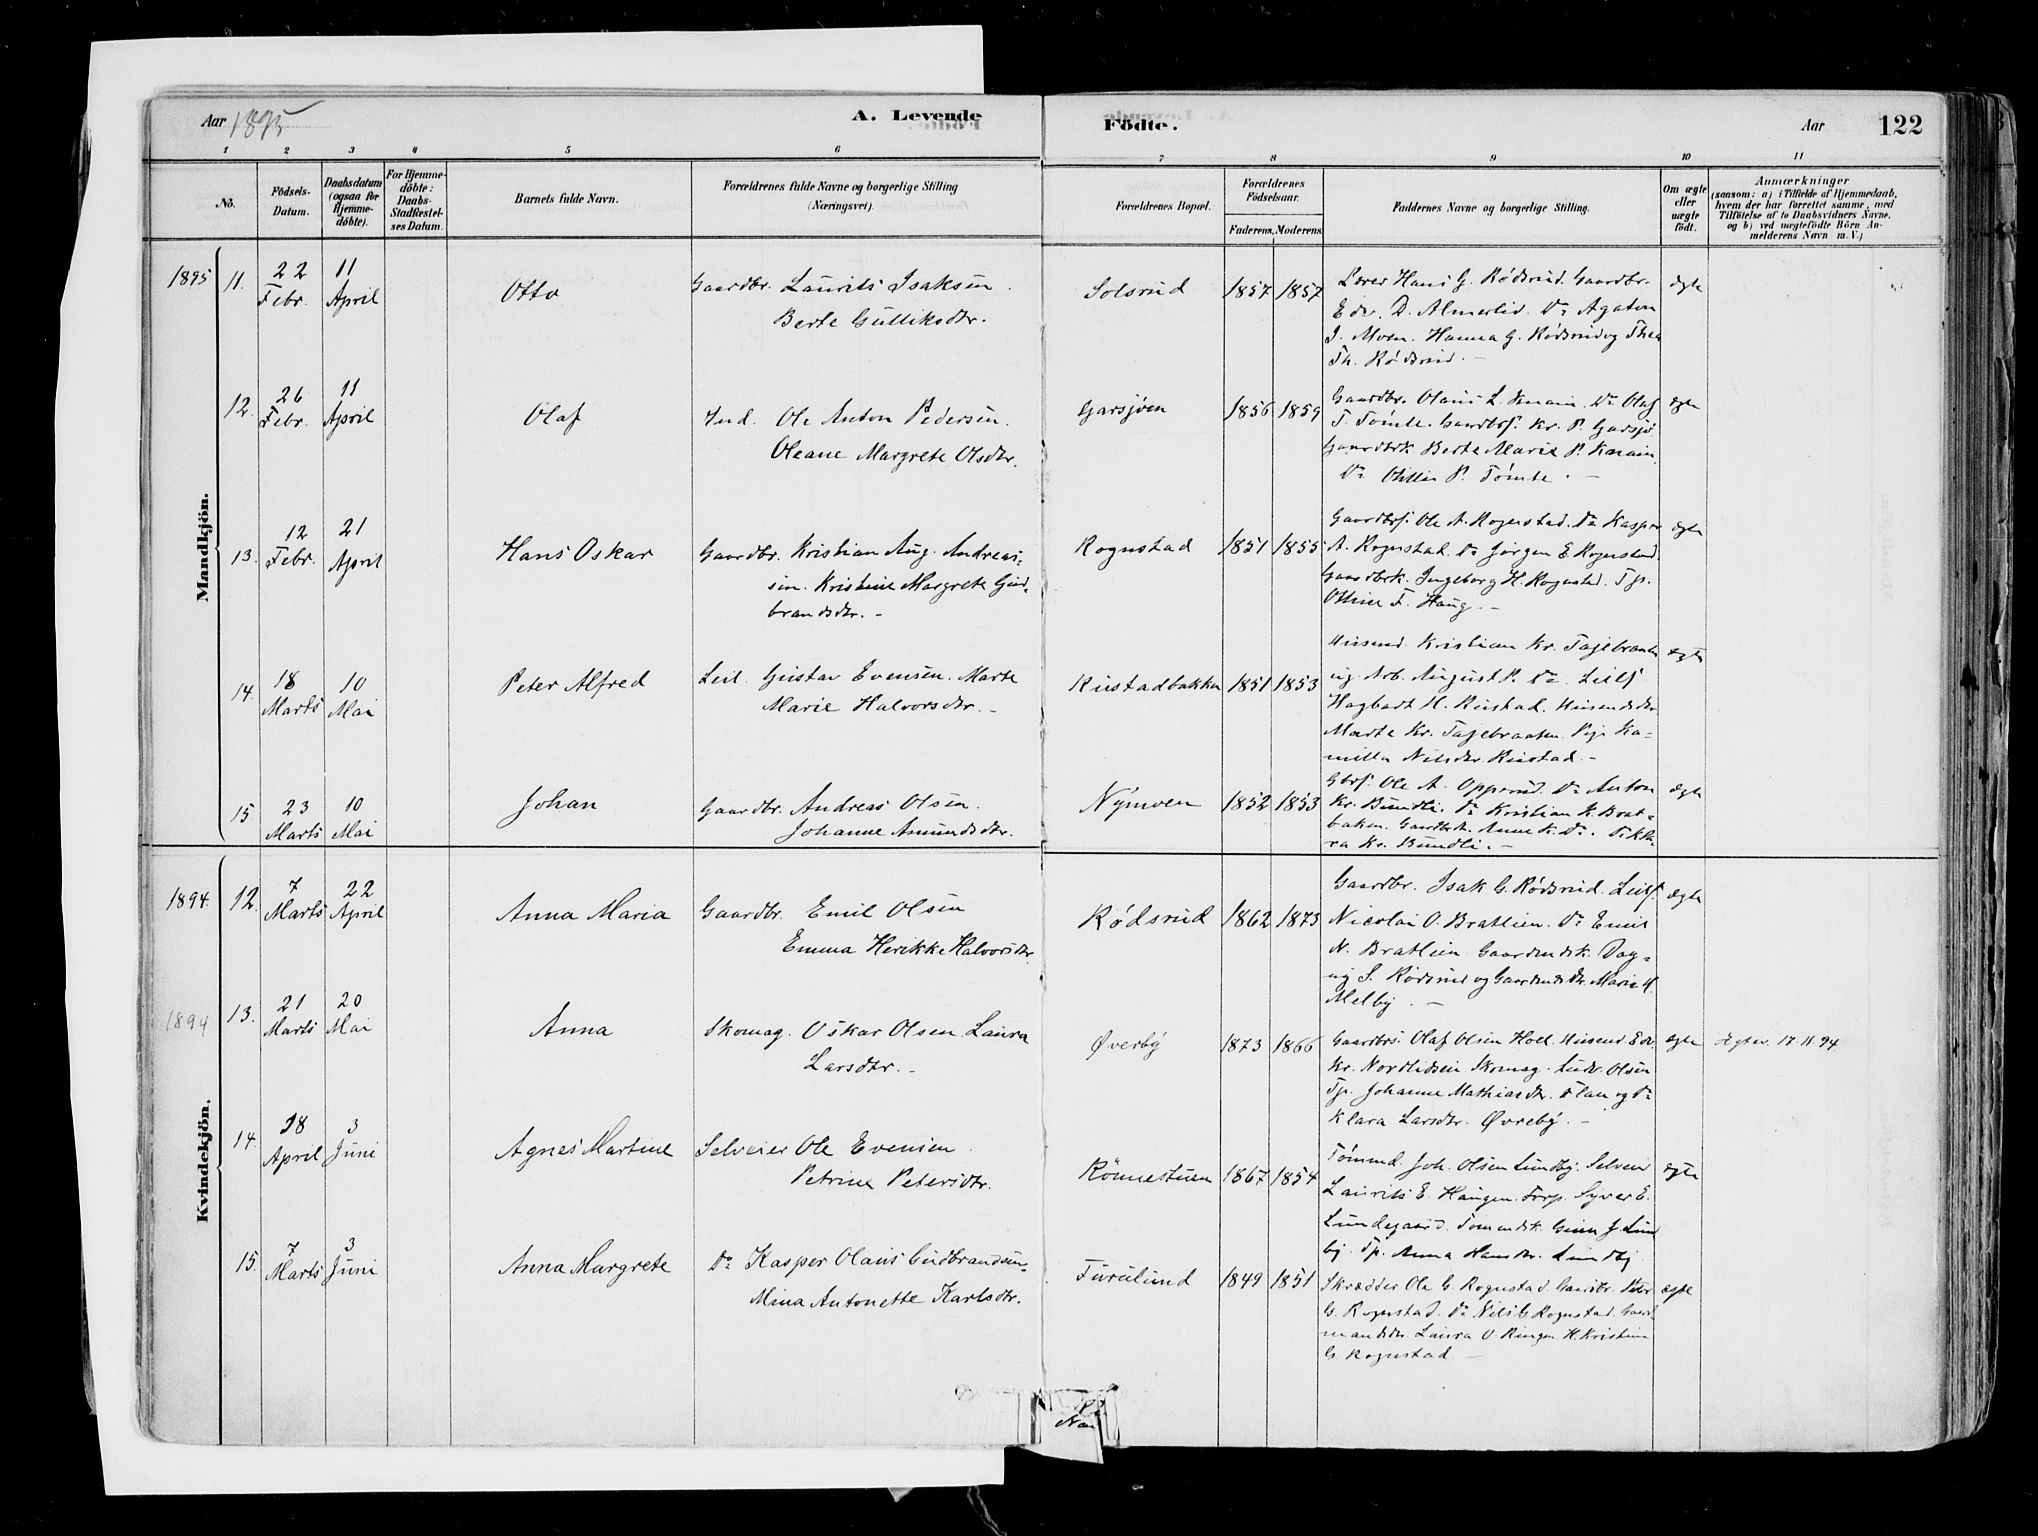 Aar 1895
A. Levende
Födte.
Aar
122
1 2 3 4 5 6 7 8 9 10 11
No.
Födsels-
Datum.
Daabsdatum
(ogsaa for
Hjemme-
döbte).
For Hjemme-
döbte:
Daabs-
Stadfestel-
ses Datum.
Barnets fulde Navn.
Forældrenes fulde Navne og borgerlige Stilling
(Næringsvei).
Forældrenes Bopæl.
Forældrenes
Födselsaar.
Faderens. Moderens.
Faddernes Navne og borgerlige Stilling.
Om ægte
eller
uægte
födt.
Anmærkninger
(saasom: a) i Tilfælde af Hjemmedaab,
hvem der har forrettet samme, med
Tilföielse af to Daabsvidners Navne,
og b) ved uægtefödte Börn An-
melderens Navn m. V.)
Mandkjön.
1895 11. 22 Febr. 11 April
Otto
Gaardbr. Laurits Isaksen.
Berte Gulliksdtr.
Solsrud
1857 1857
Lærer Hans G. Rødsrud. Gaardbr.
Edv. D. Almerlid. Do Agaton
J. Moen. Hanna G. Rødsrud og Thea
Th. Rødsrud. -
ægte
12. 26 Febr. 11 April
Olaf
Ind. Ole Anton Pedersen.
Oleane Margrete Olsdtr.
Garsjøen
1856 1859
Gaardbr. Olaus L. Do Olaf
T. Tømte. Gaardbrs. Kr. P. Garsjø
Gaardbrk. Berte Marie P.
Do P. Tømte. -
ægte
13. 12 Febr. 21 April
Hans Oskar
Gaardbr. Kristian Aug. Andreas-
sen. Kristine Margrete Gud-
brandsdtr. -
Rognstad
1851 1855
Gaardbrs. Ole A. Rognstad. Do Kasper
A. Rognstad. Do Jørgen E. Rognstad.
Gaardbrk. Ingeborg H. Rognstad. Tjp.
F. Haug. -
ægte
14. 18 Marts 10 Mai
Peter Alfred
Leil. Gustav Evensen. Marte
Marie Halvorsdtr. -
Rustadbakken
1851 1853
Husmd. Kristian Kr. Tajebraaten
og Arb. August P. Do. Leilf
Hagbart H. Rustad. Husmdsdtr
Marte Kr. Tajebraaten. Pige Ka-
milla Nilsdtr. Rustad. -
ægte
15. 23 Marts 10 Mai
Johan
Gaardbr. Andreas Olsen.
Johanne Amundsdtr.
Nymoen
1852 1853
Gbrs. Ole A. Opperud. Do Anton
Kr. Bundli. Do Kristian K. Brat-
bakken. Anne K. Do.
ra Kr. Bundli. -
ægte
Kvindekjön.
1894. 12. 7 Marts 22 April
Anna Maria
Gaardbr. Emil Olsen
Emma Henikke Halvorsdtr.
Rødsrud
1862 1873
Gaardbr. Isak G. Rødsrud. Leilf.
Nicolai O. Bratlien. Do Emil
N. Bratlien. Gaardmdsk. Dag-
ny S. Rødsrud og Gaardmdsdtr. Marie H.
Melby. -
ægte
1894 13. 21 Marts 20 Mai
Anna
Skomag. Oskar Olsen. Laura
Larsdtr. -
Øverby
1873 1866
Gaardbrs. Olaf Olsen Hoel. Husmd Edv.
Kr. Nordlidseie. Skomag. Ludv. Olsen
Tjp. Johanne Mathiasdtr. og Do
Klara Larsdtr. Øvreby. -
ægte
17.11.94.
14. 18 April 3 Juni
Agnes Martine
Selveier Ole Evensen.
Petrine Petersdtr.
Rönnestuen
1867 1854
Tömmd. Joh. Olsen Lundby. Selveier
Laurits E. Haugen. Forp. Syver E.
Lundegaard. Tömmdsk. J. Lund
by. Tjp. Anna Hansdtr. Lundby
ægte
15. 7 Marts 3 Juni
Anna Margrete
Do Kasper Olaus Gudbrandsen.
Mina Antonette Karlsdtr.
Furulund
1849 1851
Skrædder Ole G. Rognstad. Gaardbr. Peter
G. Rognstad. Do Nils G. Rognstad. Gaard
mandsdtr. Laura O. Ringen. H. Kristine
G. Rognstad. -
ægte